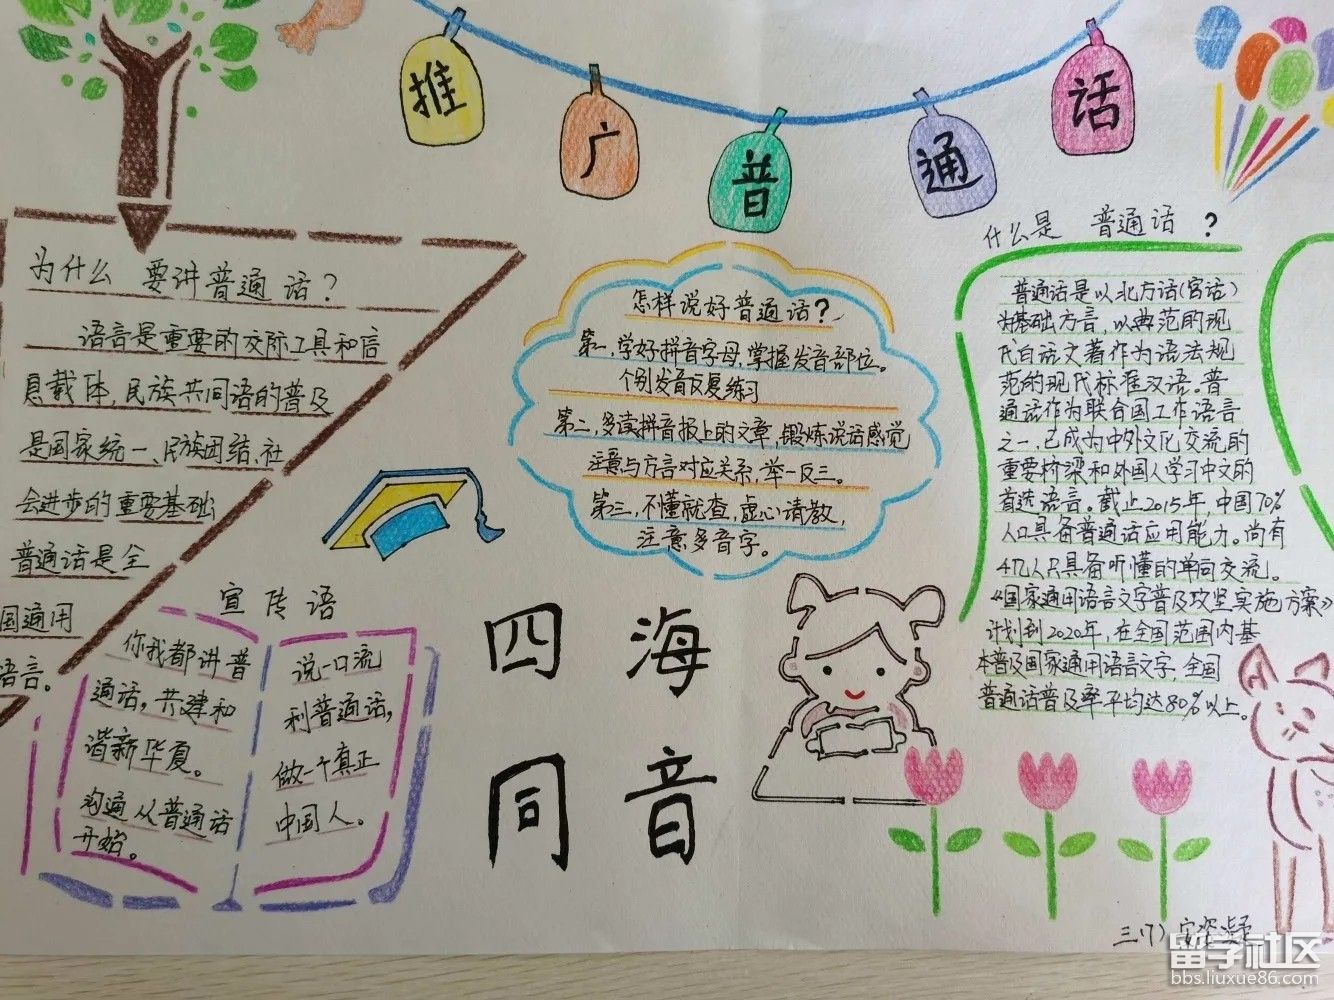 推广普通话
为什么 要讲普通话?
语言是重要的交际工具和信
息载体,民族共同语的普及
是国家统一、民族团结、社
会进步的重要基础
普通话是全
国通用
语言。
宣传语
你我都讲普
通话,共建和
谐新华夏。
沟通从普通话
开始。
说一口流
利普通话,
做一个真正
中国人。
怎样说好普通话?
第一,学好拼音字母,掌握发音部位。
个别发音反复练习
第二,多读拼音报上的文章,锻炼说话感觉
注意与方言对应关系,举一反三。
第三,不懂就查,虚心请教,
注意多音字。
四海
同音
什么是 普通话?
普通话是以北方话(官话)
为基础方言,以典范的现
代白话文著作为语法规
范的现代标准汉语。普
通话作为联合国工作语言
之一,已成为中外文化交流的
重要桥梁和外国人学习中文的
首选语言。截止2015年,中国70%
人口具备普通话应用能力。尚有
4亿人只具备听懂的单向交流。
《国家通用语言文字普及攻坚实施方案》
计划到2020年,在全国范围内基
本普及国家通用语言文字,全国
普通话普及率平均达80%以上。
三(7)
留学社区
bbs.liuxue86.com